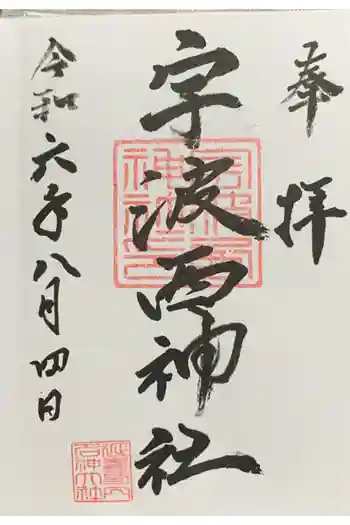 奉拝
宇波西神社
令和六年八月四日